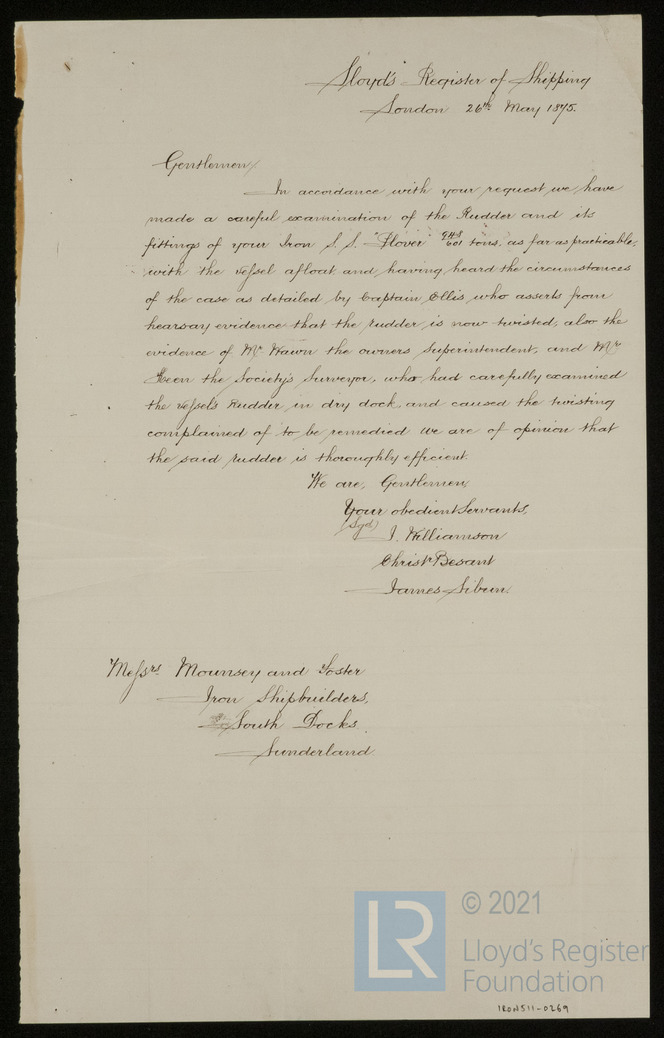 Lloyd's Register of Shipping
London 26th May 1875.
Gentlemen,
In accordance with your request, we have
made a careful examination of the Rudder and its
fittings of your Iron S.S. "Plover" 943/601 tons, as far as practicable,
with the vessel afloat, and having heard the circumstances
of the case as detailed by Captain Ellis who asserts from
hearsay evidence that the rudder is now twisted, also the
evidence of Mr Hawn the owners Superintendent, and Mr
Keen the Society's Surveyor, who had carefully examined
the vessel's Rudder in dry dock, and caused the twisting
complained of to be remedied We are of opinion that
the said rudder is thoroughly efficient.
We are, Gentlemen,
Your obedient Servants,
(Sgd)
J. Williamson
Christr Besant
James Sibun.
Messrs Mounsey and Foster
Iron Shipbuilders,
South Docks
Sunderland
LR
© 2021
Lloyd's Register
Foundation
IRON511-0269